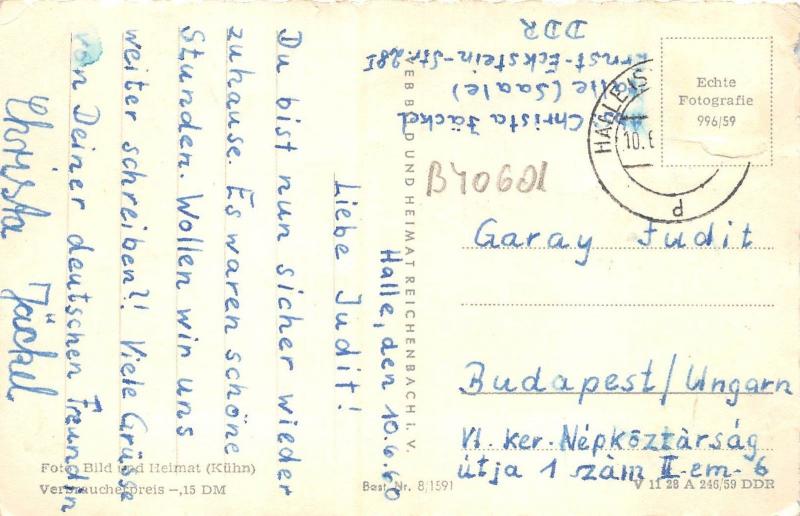 Halle, den 10.6.60
Liebe Judit!
Du bist nun sicher wieder
zuhause. Es waren schöne
Stunden. Wollen wir uns
weiter schreiben?! Viele Grüsse
von Deiner deutschen Freundin
Christa Jäckel
Christa Jäckel
Halle (Saale)
Ernst-Eckstein-Str. 28I
DDR
Echte
Fotografie
996/59
HALLE (S
10.6
d
B40601
Garay Judit
Budapest/Ungarn
VI. ker. Népköztàrság
útja 1 szàm II-em-6
VEB BILD UND HEIMAT REICHENBACH i. V.
Foto: Bild und Heimat (Kühn)
Verbraucherpreis -,15 DM
Best. Nr. 8/1591
V 11 28 A 246/59 DDR